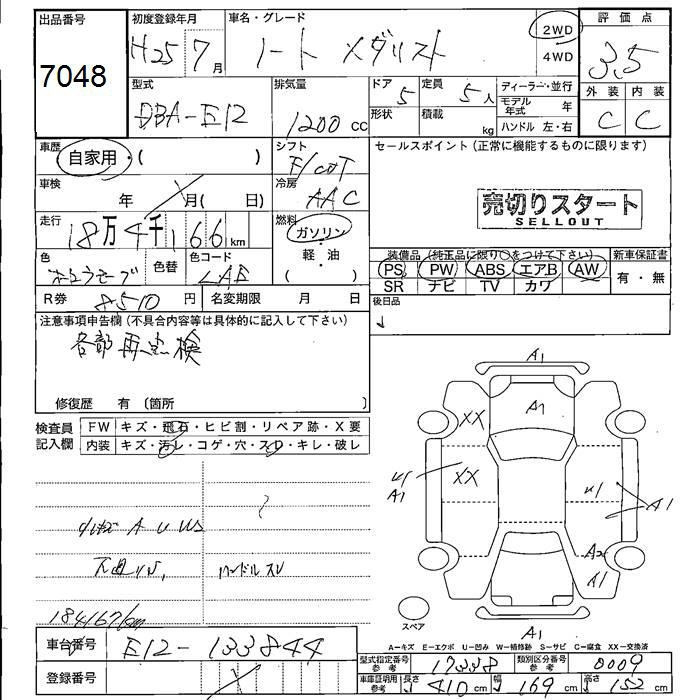 出品番号
7048
初度登録年月
H25 7月
車名・グレード
ノート メダリスト
2WD
4WD
評価点
3.5
外装 内装
C C
型式
DBA-E12
排気量
1200 cc
ドア
5
形状
定員
5人
積載
kg
ディーラー・並行
モデル年式 年
ハンドル 左・右
車歴
自家用・( )
シフト
F/CAT
車検
年 月( 日)
冷房
AAC
走行
18万4千166km
燃料
ガソリン
軽・油
( )
色
色替
色コード
LAE
R券 8510円
名変期限 月 日
セールスポイント(正常に機能するものに限ります)
売切りスタート
SELLOUT
装備品(純正品に限り○をつけて下さい)
PS PW ABS エアB AW
SR ナビ TV カワ
新車保証書
有・無
後日品
注意事項申告欄(不具合内容等は具体的に記入して下さい)
各部再点検
修復歴 有(箇所 )
検査員記入欄
FW キズ・飛石・ヒビ割・リペア跡・X要
内装 キズ・汚レ・コゲ・穴・スレ・キレ・破レ
A U US
ハンドルスレ
184167km
車台番号
E12-133844
登録番号
A1
A1
XX
XX
A1
A1
A2
A1
A1
スペア
A-キズ E-エクボ U-凹み W-補修跡 S-サビ C-腐食 XX-交換済
型式指定番号 参考
17338
類別区分番号 参考
0009
車庫証明用 参考
長さ 410cm 幅 169cm 高さ 152cm